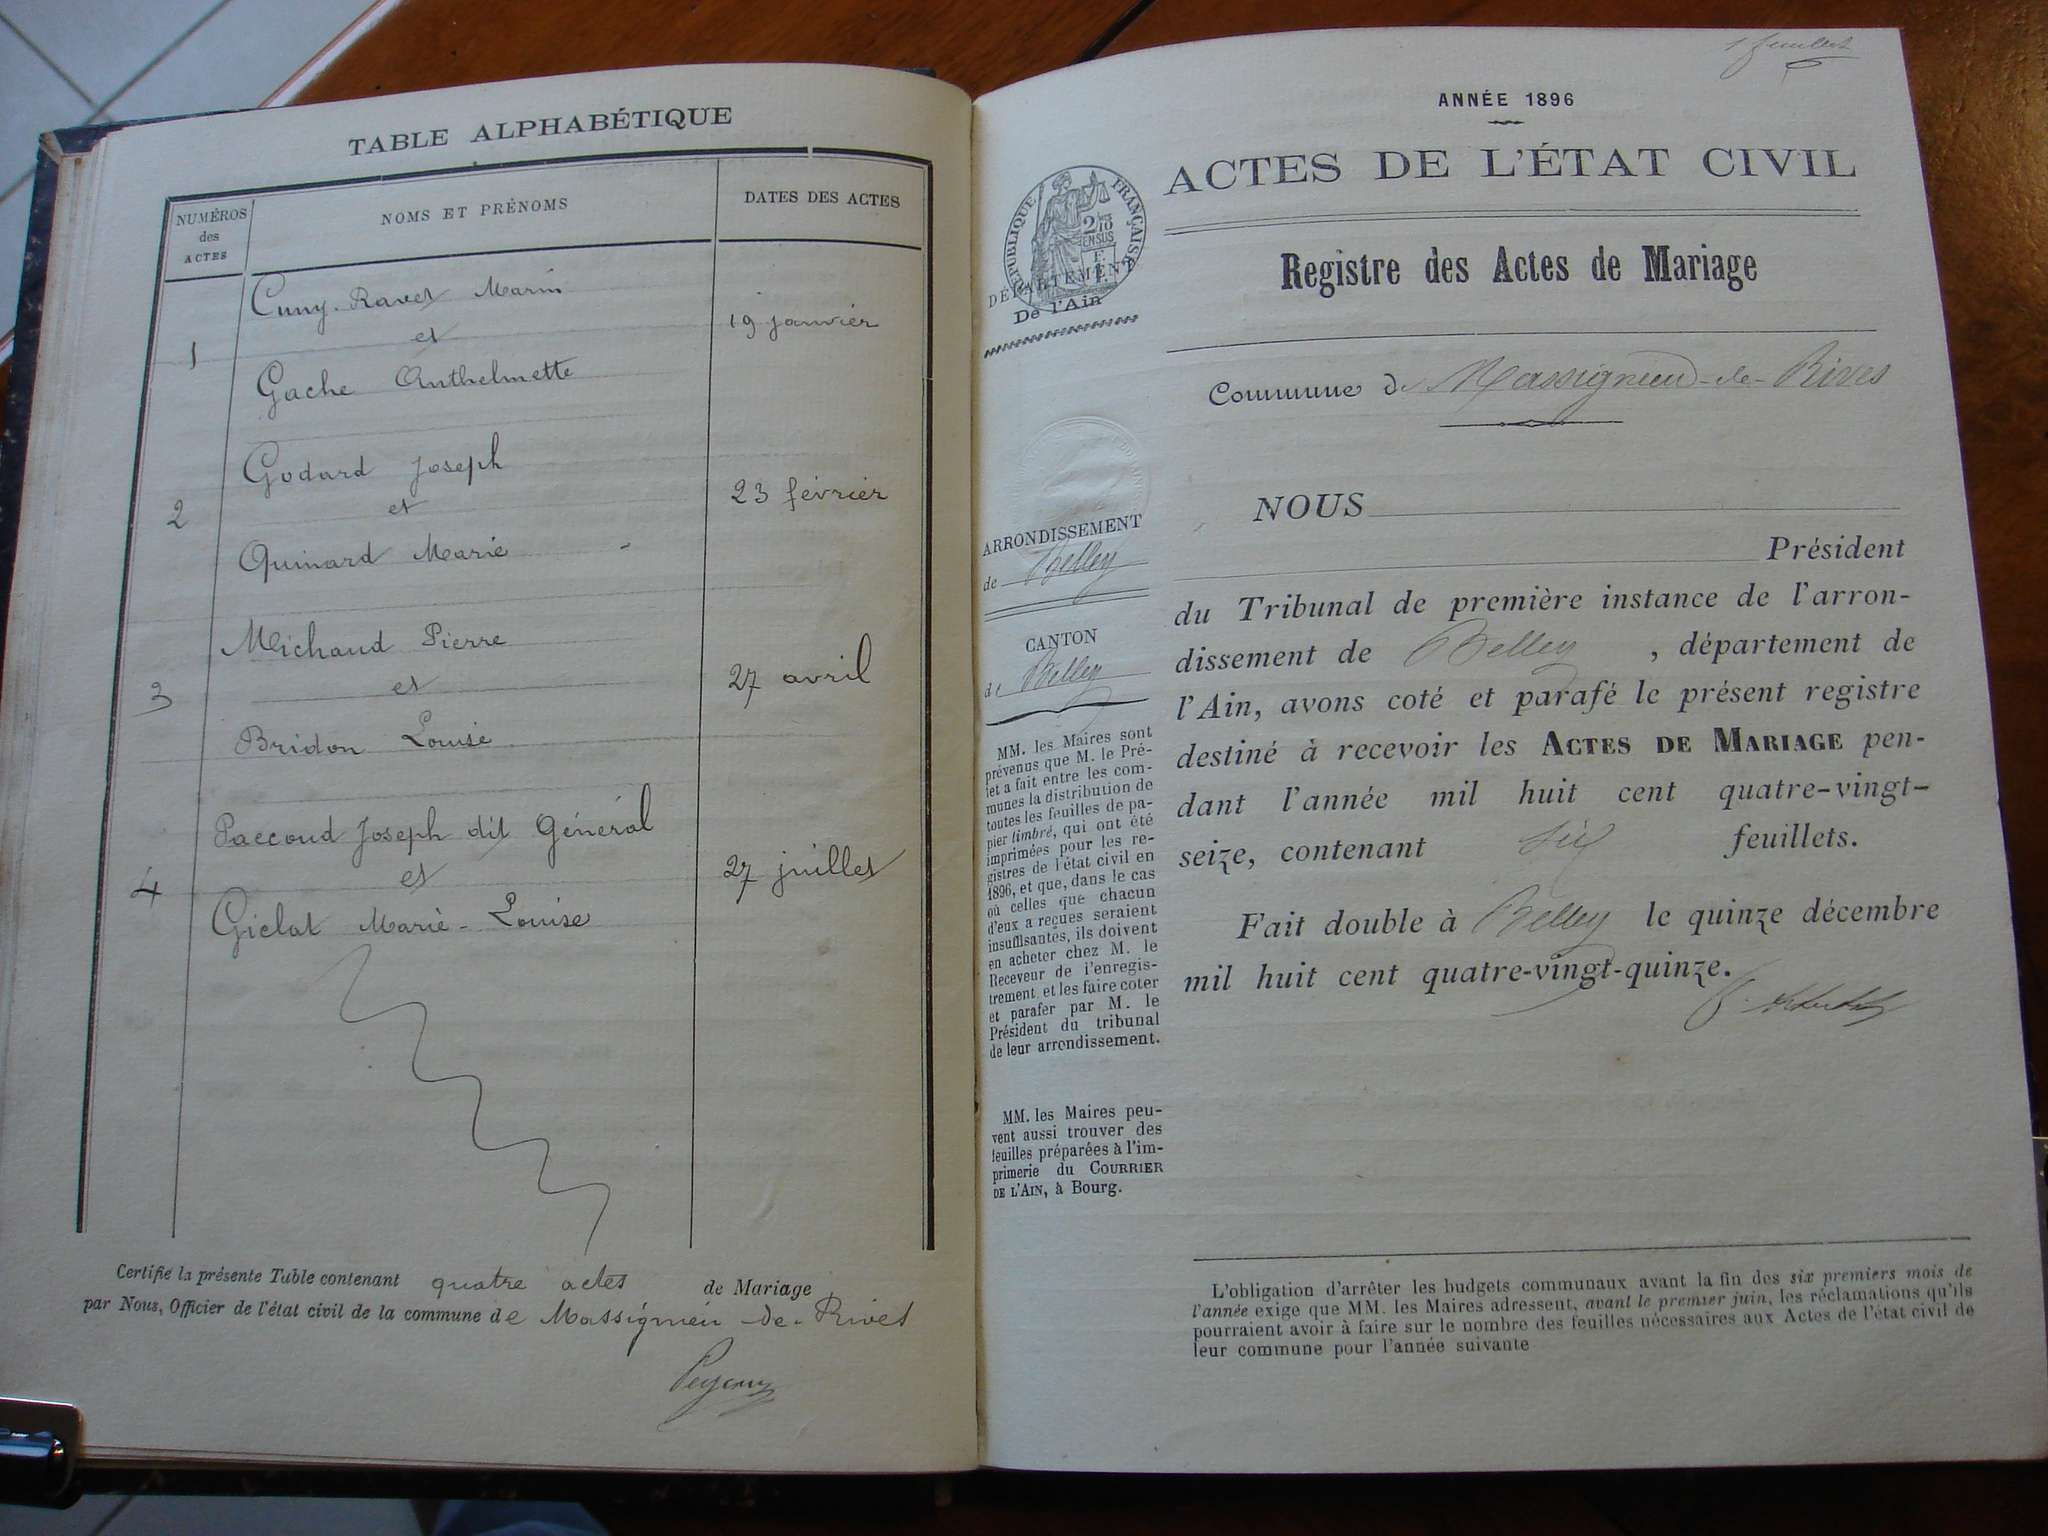 TABLE ALPHABÉTIQUE
NUMÉROS
des
ACTES
NOMS ET PRÉNOMS
DATES DES ACTES
Cuny-Ravet Marin
1
et
19 janvier
Gache Anthelmette
Godard Joseph
2
et
23 février
Quinard Marie
Michaud Pierre
3
et
27 avril
Bridon Louise
Paccoud Joseph dit Général
4
et
27 juillet
Giclat Marie-Louise
Certifié la présente Table contenant quatre actes de Mariage
par Nous, Officier de l'état civil de la commune de Massignieu-de-Rives
1 feuillet
ANNÉE 1896
ACTES DE L'ÉTAT CIVIL
RÉPUBLIQUE FRANÇAISE
DÉPARTEMENT
De l'Ain
Registre des Actes de Mariage
Commune de Massignieu-de-Rives
ARRONDISSEMENT
de Belley
CANTON
de Belley
MM. les Maires sont
prévenus que M. le Pré-
fet a fait entre les com-
munes la distribution de
toutes les feuilles de pa-
pier timbré, qui ont été
imprimées pour les re-
gistres de l'état civil en
1896, et que, dans le cas
où celles que chacun
d'eux a reçues seraient
insuffisantes, ils doivent
en acheter chez M. le
Receveur de l'enregis-
trement et les faire coter
et parafer par M. le
Président du tribunal
de leur arrondissement.
MM. les Maires peu-
vent aussi trouver des
feuilles préparées à l'im-
primerie du COURRIER
DE L'AIN, à Bourg.
NOUS
Président
du Tribunal de première instance de l'arron-
dissement de Belley, département de
l'Ain, avons coté et parafé le présent registre
destiné à recevoir les ACTES DE MARIAGE pen-
dant l'année mil huit cent quatre-vingt-
seize, contenant six feuillets.
Fait double à Belley le quinze décembre
mil huit cent quatre-vingt-quinze.
L'obligation d'arrêter les budgets communaux avant la fin des six premiers mois de
l'année exige que MM. les Maires adressent, avant le premier juin, les réclamations qu'ils
pourraient avoir à faire sur le nombre des feuilles nécessaires aux Actes de l'état civil de
leur commune pour l'année suivante